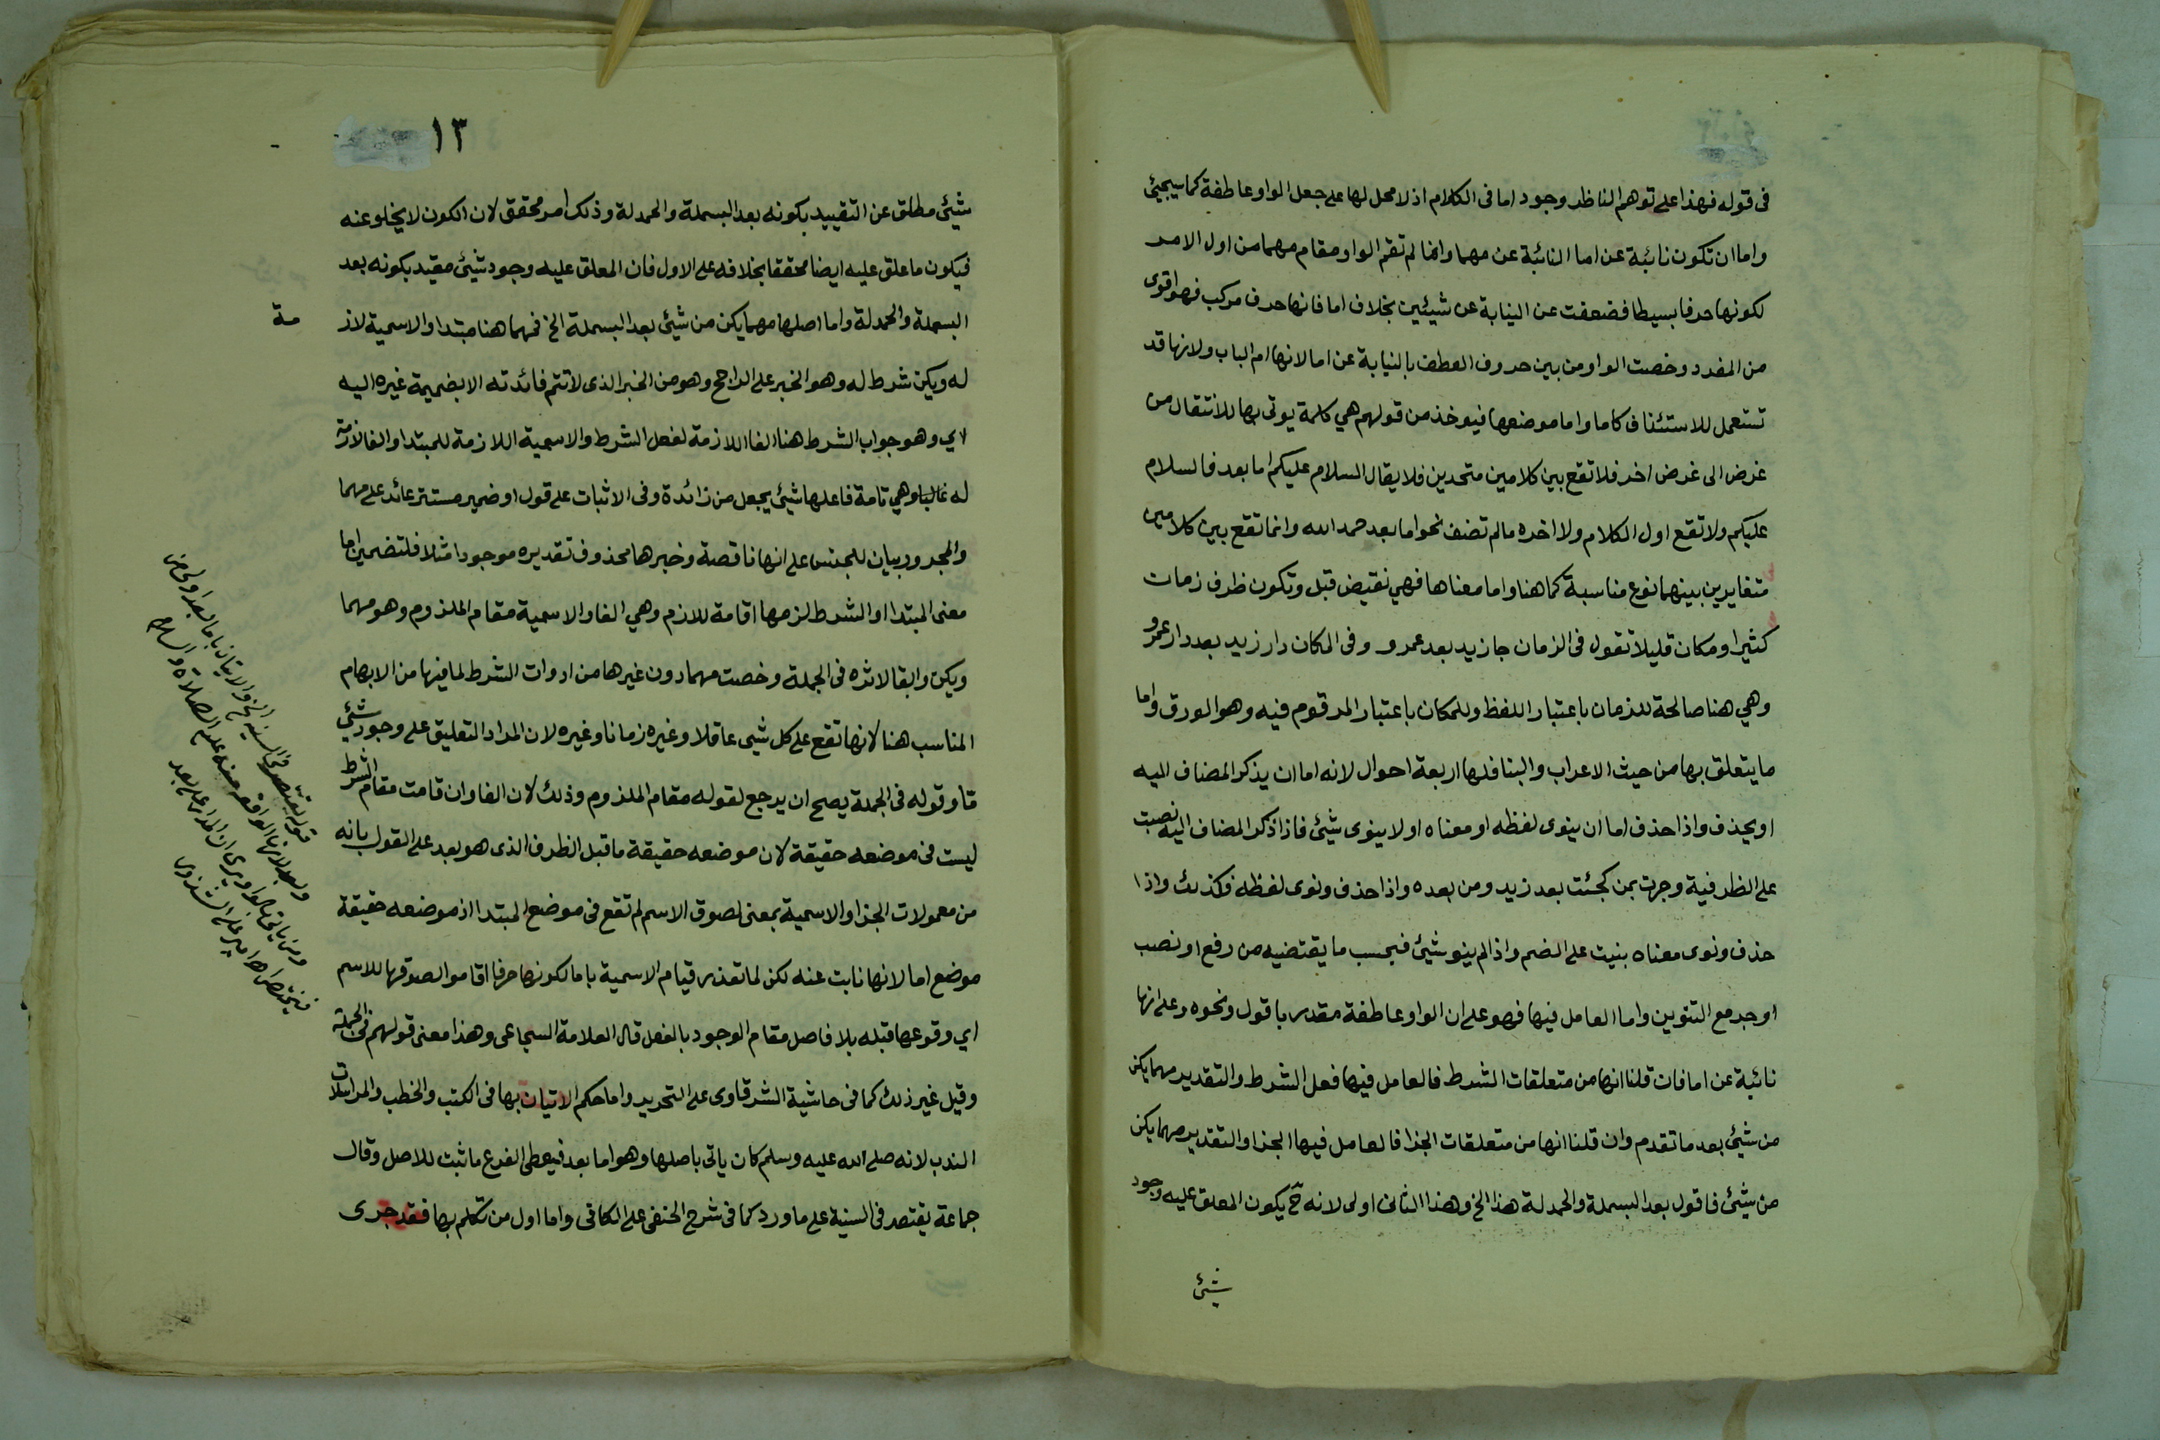 فى قوله فهذا على توهم الناظر وجود اما فى الكلام اذ لا محل لها على جعل الواو عاطفة كما سيجيئ
واما ان تكون نائبة عن اما النائبة عن مهما وانما لم تقم الواو مقام مهما من اول الامر
لكونها حرفا بسيطا فضعفت عن النيابة عن شيئين بخلاف اما فانها حرف مركب فهو اقوى
من المفرد وخصت الواو من بين حروف العطف بالنيابة عن اما لانها ام الباب ولانها قد
تستعمل للاستئناف كاما واما موضعها فيوخذ من قولهم هي كلمة يوتى بها للانتقال من
غرض الى غرض اخر فلا تقع بين كلامين متحدين فلا يقال السلام عليكم اما بعد فالسلام
عليكم ولا تقع اول الكلام ولا اخره مالم تضف نحو اما بعد حمد الله وانما تقع بين كلامين
متغايرين بينهما نوع مناسبة كما هنا واما معناها فهي نقيض قبل وتكون ظرف زمان
كثيرا ومكان قليلا تقول فى الزمان جا زيد بعد عمرو وفى المكان دار زيد بعد دار عمرو
وهي هنا صالحة للزمان باعتبار اللفظ وللمكان باعتبار المرقوم فيه وهو الورق واما
ما يتعلق بها من حيث الاعراب والبنا فلها اربعة احوال لانه اما ان يذكر المضاف اليه
او يحذف واذا حذف اما ان ينوى لفظه او معناه او لا ينوى شيئ فاذا ذكر المضاف اليه نصبت
على الظرفية وجرت بمن كجئت بعد زيد ومن بعده واذا حذف ونوى لفظه فكذلك واذا
حذف ونوى معناه بنيت على الضم واذا لم ينو شيئ فبحسب ما يقتضيه من رفع او نصب
او جر مع التنوين واما العامل فيها فهو على ان الواو عاطفة مقدر باقول ونحوه وعلى انها
نائبة عن اما فان قلنا انها من متعلقات الشرط فالعامل فيها فعل الشرط والتقدير مهما يكن
من شيئ بعد ما تقدم وان قلنا انها من متعلقات الجزا فالعامل فيها الجزا والتقدير مهما يكن
من شيئ فاقول بعد البسملة والحمدلة هذا الخ وهذا الثانى اولى لانه ح يكون المعلق عليه وجود
شيئ
١٣
شيئ مطلق عن التقييد بكونه بعد البسملة والحمدلة وذلك امر محقق لان الكون لا يخلو عنه
فيكون ما علق عليه ايضا محققا بخلافه على الاول فان المعلق عليه وجود شيئ مقيد بكونه بعد
البسملة والحمدلة واما اصلها مهما يكن من شيئ بعد البسملة الخ فمهما هنا مبتدا والاسمية لاز
مة
له ويكن شرط له وهو الخبر على الراجح وهو من الخبر الذى لا تتم فائدته الا بضميمة غيره اليه
اي وهو جواب الشرط هنا الفا اللازمة لفعل الشرط والاسمية اللازمة للمبتدا والفا لازمة
له غالبا وهي تامة فاعلها شيئ بجعل من زائدة وفى الاثبات على قول او ضمير مستتر عائد على مهما
والمجرور بيان للجنس على انها ناقصة وخبرها محذوف تقديره موجودا مثلا فلتضمين اما
معنى المبتدا او الشرط لزمها اقامة للازم وهي الفا والاسمية مقام الملزوم وهو مهما
ويكن وابقا لاثره فى الجملة وخصت مهما دون غيرها من ادوات الشرط لما فيها من الابهام
المناسب هنا لانها تقع على كل شيى عاقلا وغيره زمانا وغيره لان المراد التعليق على وجود شيئ
قا وقوله فى الجملة يصح ان يرجع لقوله مقام الملزوم وذلك لان الفا وان قامت مقام الشرط
ليست فى موضعه حقيقة لان موضعه حقيقة ما قبل الظرف الذى هو بعد على القول بانه
من معمولات الجزا والاسمية بمعنى لصوق الاسم لم تقع فى موضع المبتدا اذ موضعه حقيقة
موضع اما لانها نابت عنه لكن لما تعذر قيام الاسمية باما لكونها حرفا اقاموا لصوقها للاسم
اي وقوعها قبله بلا فاصل مقام الوجود بالفعل قال العلامة السجاعى وهذا معنى قولهم فى الجملة
وقيل غير ذلك كما فى حاشية الشرقاوى على التحرير واما حكم الاتيان بها فى الكتب والخطب والمراسلات
الندب لانه صلى الله عليه وسلم كان ياتى باصلها وهو اما بعد فيعطى الفرع ما ثبت للاصل وقال
جماعة يقتصر فى السنية على ما ورد كما فى شرح الحنفى على الكافى واما اول من تكلم بها فقد جرى
قوله يقتصر فى السنية الخ والاتيان باما بعد اولى من